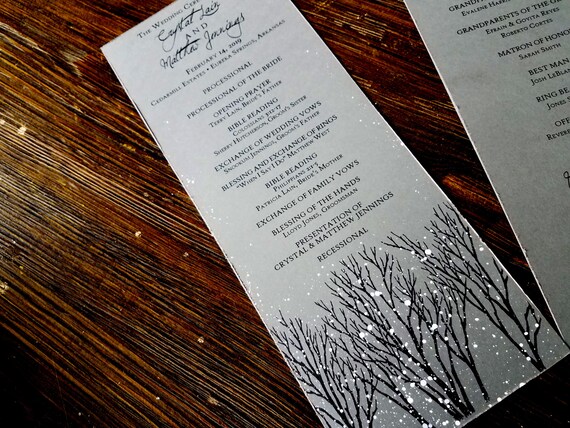 The Wedding Cere
Crystal Lain
and
Matthew Jennings
February 14, 2009
Cedarmill Estates • Eureka Springs, Arkansas
Processional
Processional of the Bride
Opening Prayer
Terry Lain, Bride's Father
Bible Reading
Colossians 3:12-17
Sherry Hutcherson, Groom's Sister
Exchange of Wedding Vows
Snookum Jennings, Groom's Father
Blessing and Exchange of Rings
"When I Say I Do" Matthew West
Bible Reading
Philippians
Patricia Lain, Bride's Mother
Exchange of Family Vows
Blessing of the Hands
Lloyd Jones, Groomsman
Presentation of
Crystal & Matthew Jennings
Recessional
Grandpar
Evalene
Grandparents of the G
Efraim & Govita Reyes
Roberto Coates
Matron of Hono
Sarah Smith
Best Man
Josh LeBla
Ring Be
Jon
Of
Revere